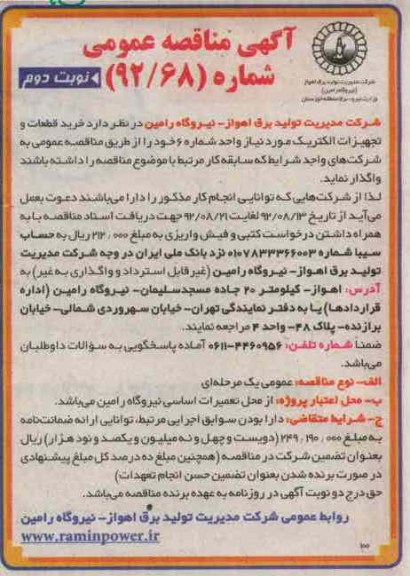 آگهی مناقصه عمومی
شماره (۹۲/۶۸) نوبت دوم
شرکت مدیریت تولید برق اهواز
(نیروگاه رامین)
شرکت مدیریت تولید برق اهواز- نیروگاه رامین در نظر دارد خرید قطعات و
تجهیزات الکتریک مورد نیاز واحد شماره ۶ خود را از طریق مناقصه عمومی به
شرکت‌های واجد شرایط که سابقه کار مرتبط با موضوع مناقصه را داشته باشند
واگذار نماید.
لذا از شرکت‌هایی که توانایی انجام کار مذکور را دارا می‌باشند دعوت بعمل
می‌آید از تاریخ ۹۲/۰۸/۱۳ لغایت ۹۲/۰۸/۲۱ جهت دریافت اسناد مناقصه با به
همراه داشتن درخواست کتبی و فیش واریزی به مبلغ ۲۱۲,۰۰۰ ریال به حساب
سیبا شماره ۰۱۰۷۸۳۳۳۶۶۰۰۳ نزد بانک ملی ایران در وجه شرکت مدیریت
تولید برق اهواز- نیروگاه رامین (غیر قابل استرداد و واگذاری به غیر) به
آدرس: اهواز- کیلومتر ۲۰ جاده مسجدسلیمان- نیروگاه رامین (اداره
قراردادها) یا به دفتر نمایندگی تهران- خیابان سهروردی شمالی- خیابان
برازنده- پلاک ۴۸- واحد ۴ مراجعه نمایند.
ضمنا شماره تلفن: ۴۴۶۰۹۵۶-۰۶۱۱ آماده پاسخگویی به سؤالات داوطلبان
می‌باشد.
الف- نوع مناقصه: عمومی یک مرحله‌ای
ب- محل اعتبار پروژه: از محل تعمیرات اساسی نیروگاه رامین می‌باشد.
ج- شرایط متقاضی: دارا بودن سوابق اجرایی مرتبط، توانایی ارائه ضمانت‌نامه
به مبلغ ۲۴۹,۱۹۰,۰۰۰ (دویست و چهل و نه میلیون و یکصد و نود هزار) ریال
بعنوان تضمین شرکت در مناقصه (همچنین مبلغ ده درصد کل مبلغ پیشنهادی
در صورت برنده شدن بعنوان تضمین حسن انجام تعهدات)
حق درج دو نوبت آگهی در روزنامه به عهده برنده مناقصه می‌باشد.
روابط عمومی شرکت مدیریت تولید برق اهواز- نیروگاه رامین
www.raminpower.ir